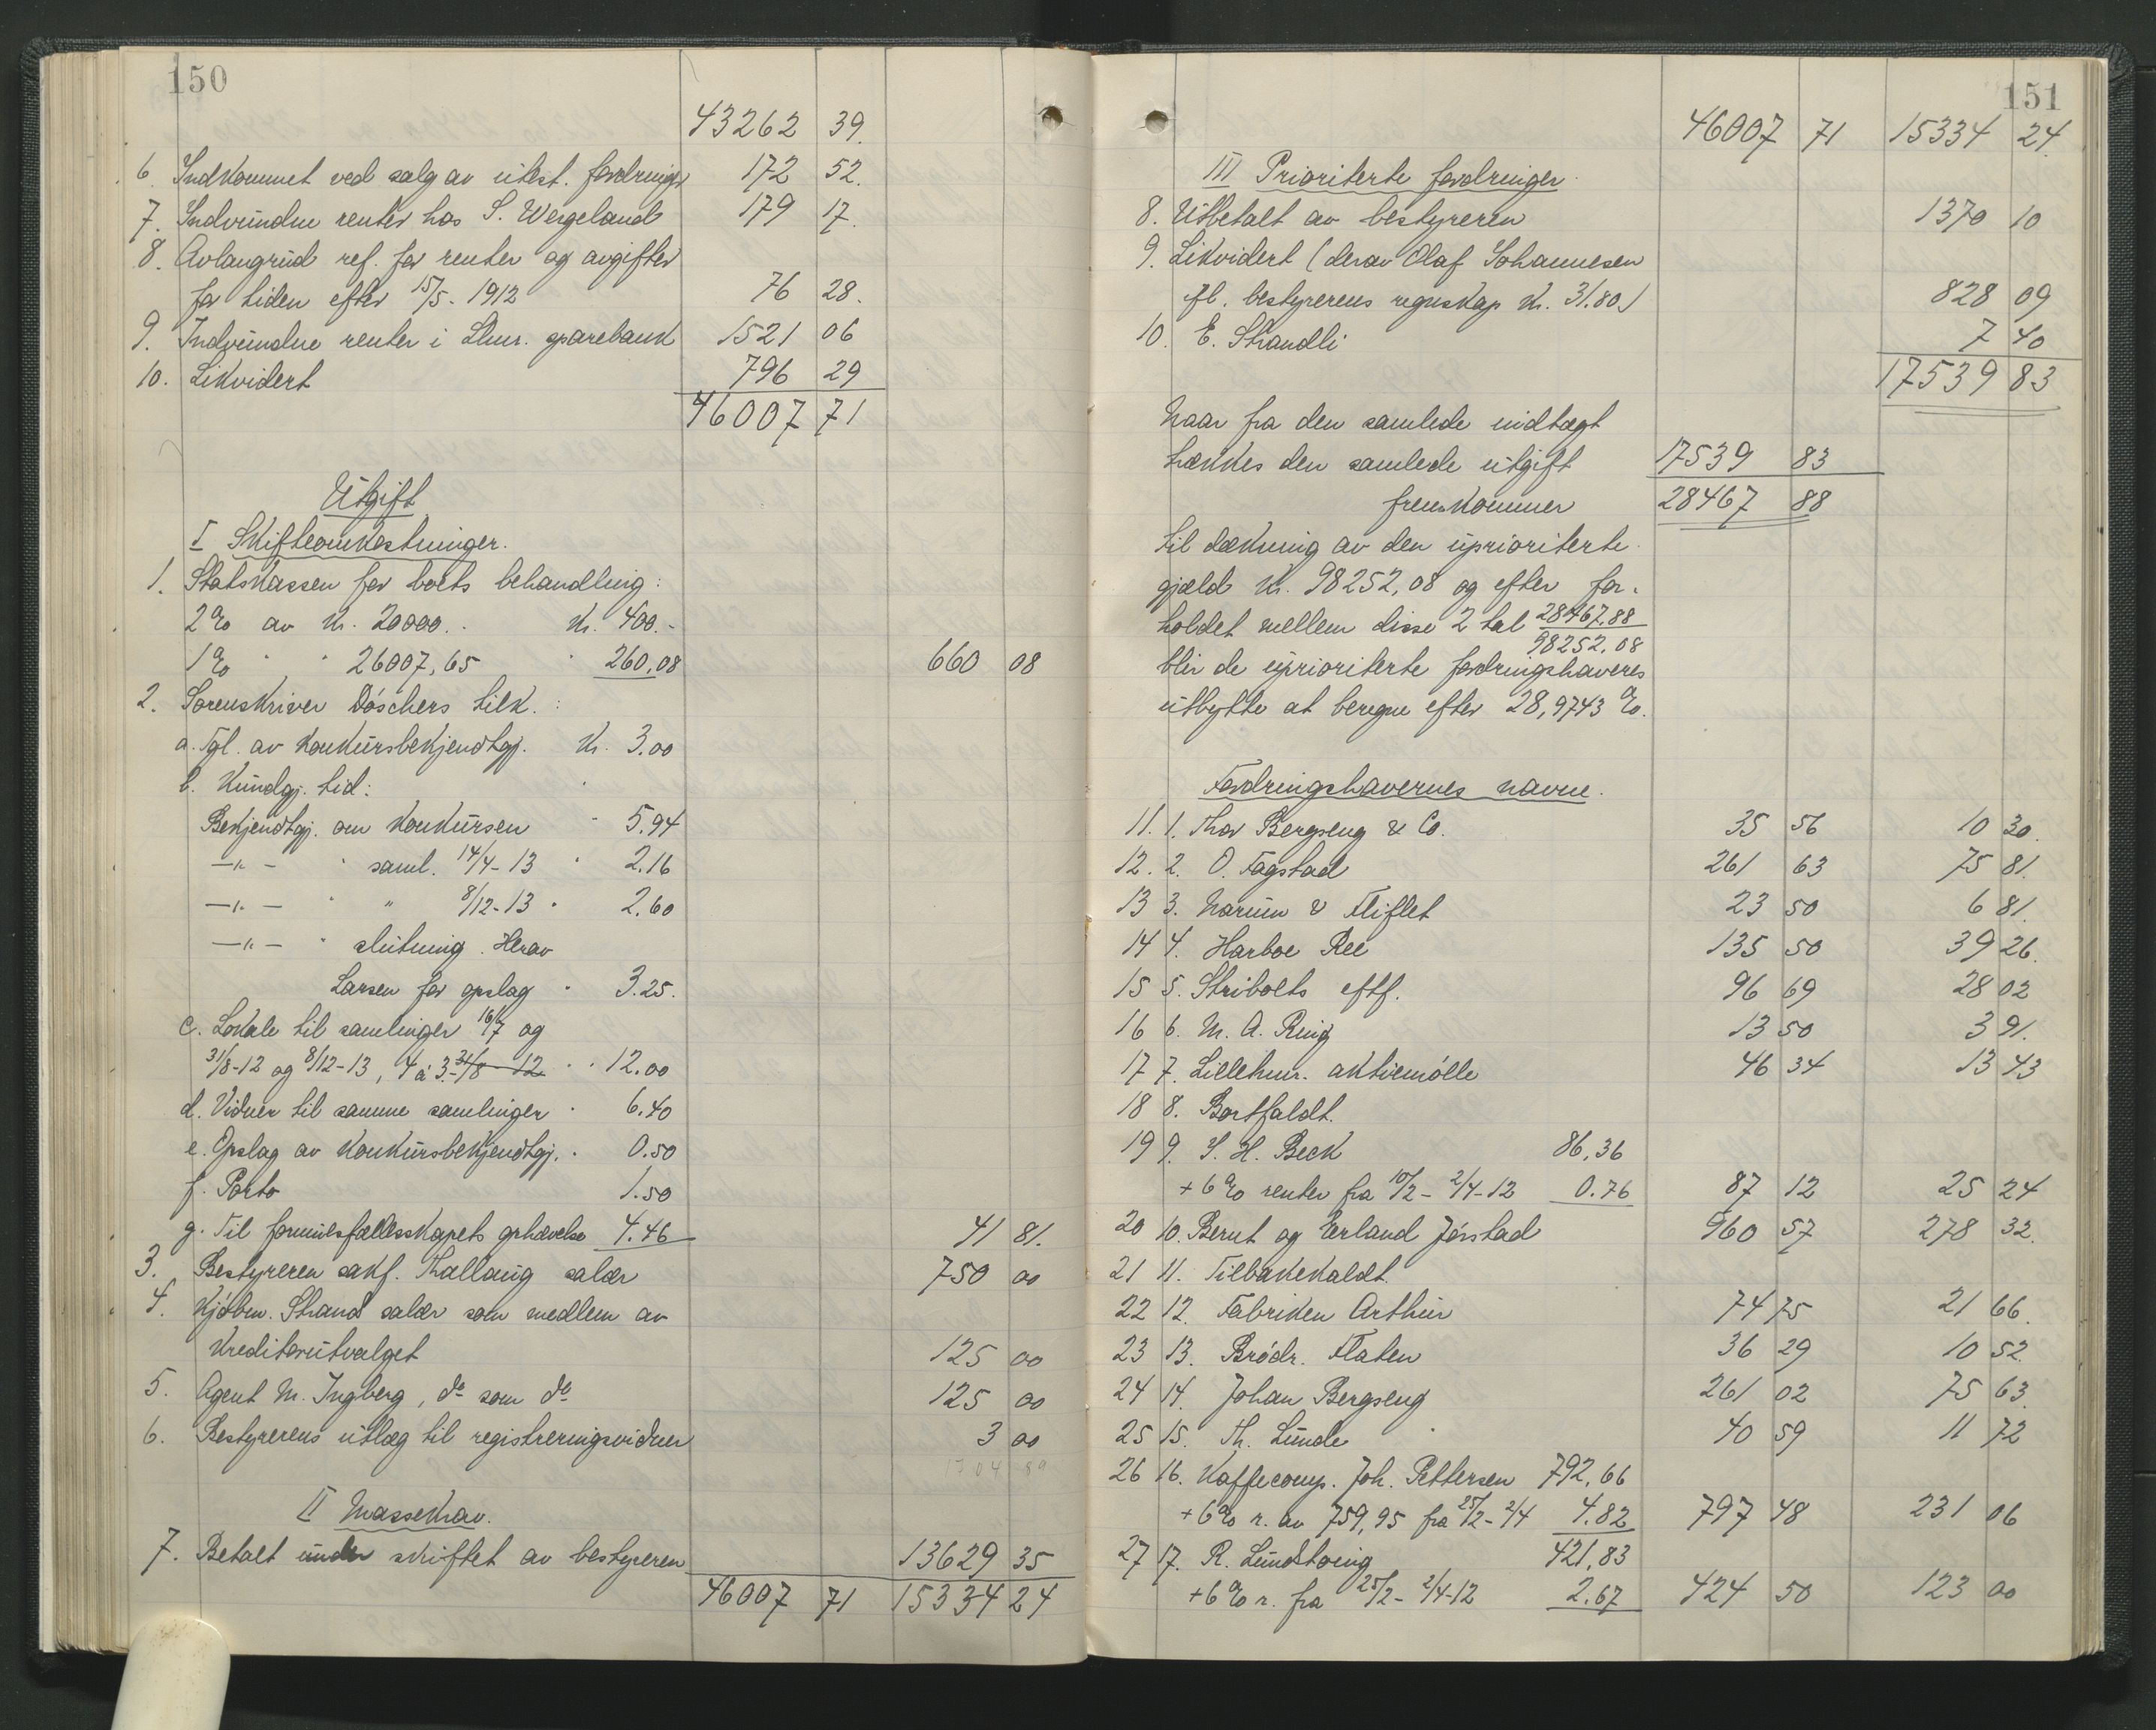 150
43262 39.
6. Indkommet ved salg av utest. fordringer 172 52.
7. Indvundne renter hos S. Wergeland 179 17.
8. Avlangrud ref. for renter og avgifter
for tiden efter 15/5-1912 76 28.
9. Indvundne renter i Lhmr. sparebank 1521 06
10. Likvidert 796 29
46007 71
Utgift
I Skifteomkostninger.
1. Statskassen for boets behandling:
2 % av Kr. 20000.- Kr. 400.-
1 % " " 26007,65 " 260,08 660 08
2. Sorenskriver Döschers tilk. :
a. Tgl. av Konkursbekjendtgj. Kr. 3.00
b. Kundgj. tid:
Bekjendtgj. om Konkursen " 5.94
—"— " saml. 14/4-13 " 2.16
—"— " " 8/12-13 " 2.60
—"— " slutning. Herav
Larsen for opslag " 3.25.
c. Lokale til samlinger 16/7 og
31/8-12 og 8/12-13, 4 á 3.- 31/8-12 " " 12.00
d. Vidner til samme samlinger " 6.40
e. Opslag av Konkursbekjendtgj. " 0.50
f. Porto 1.50
g. Til formuesfællesskapets ophævelse 4.46 41 81.
3. Bestyreren sakf. Thallaug salær 750 00
4. Kjøbm. Strand salær som medlem av
Kreditorutvalget 125 00
5. Agent M. Ingberg, do som do 125 00
6. Bestyrerens utlæg til registreringsvidner 3 00
1704 89
II Massekrav.
7. Betalt under skiftet av bestyreren 13629 35
46007 71 15334 24
151
46007 71 15334 24.
III Prioriterte fordringer.
8. Utbetalt av bestyreren 1370 10
9. Likvidert (derav Olaf Johannesen
fl. bestyrerens regnskap Kr. 31.80.) 828 09
10. E. Strandli 7 40
17539 83
Naar fra den samlede indtægt
trækkes den samlede utgift 17539 83
fremkommer 28467 88
til dækning av den uprioriterte
gjæld Kr. 98252,08 og efter for-
holdet mellem disse 2 tal 28467,88
98252,08
blir de uprioriterte fordringshaveres
utbytte at beregne efter 28,9743 %.
Fordringshavernes navne.
11. 1. Thor Bergseng & Co. 35 56 10 30.
12. 2. O. Fagstad 261 63 75 81.
13 3. Narum & Fliflet 23 50 6 81.
14 4. Harboe Ree 135 50 39 26.
15 5. Stribolts eftf. 96 69 28 02
16 6. M. A. Ring 13 50 3 91.
17 7. Lillehmr. aktiemölle 46 34 13 43
18 8. Bortfaldt.
19 9. S. H. Beck 86,36
+ 6 % renter fra 10/2 - 2/4-12 0.76 87 12 25 24
20 10. Bernt og Erland Jörstad 960 57 278 32.
21 11. Tilbakekaldt.
22 12. Fabriken Arthur 74 75 21 66.
23 13. Brödr. Flaten 36 29 10 52.
24 14. Johan Bergseng 261 02 75 63.
25 15. Th. Lunde 40 59 11 72
26 16. Kaffecomp. Joh. Pettersen 792,66
+ 6 % r. av 759,95 fra 25/2 - 2/4 4.82 797 48 231 06
27 17. R. 421,83
+ 6 % r. fra 25/2 - 2/4-12 2.67 424 50 123 00